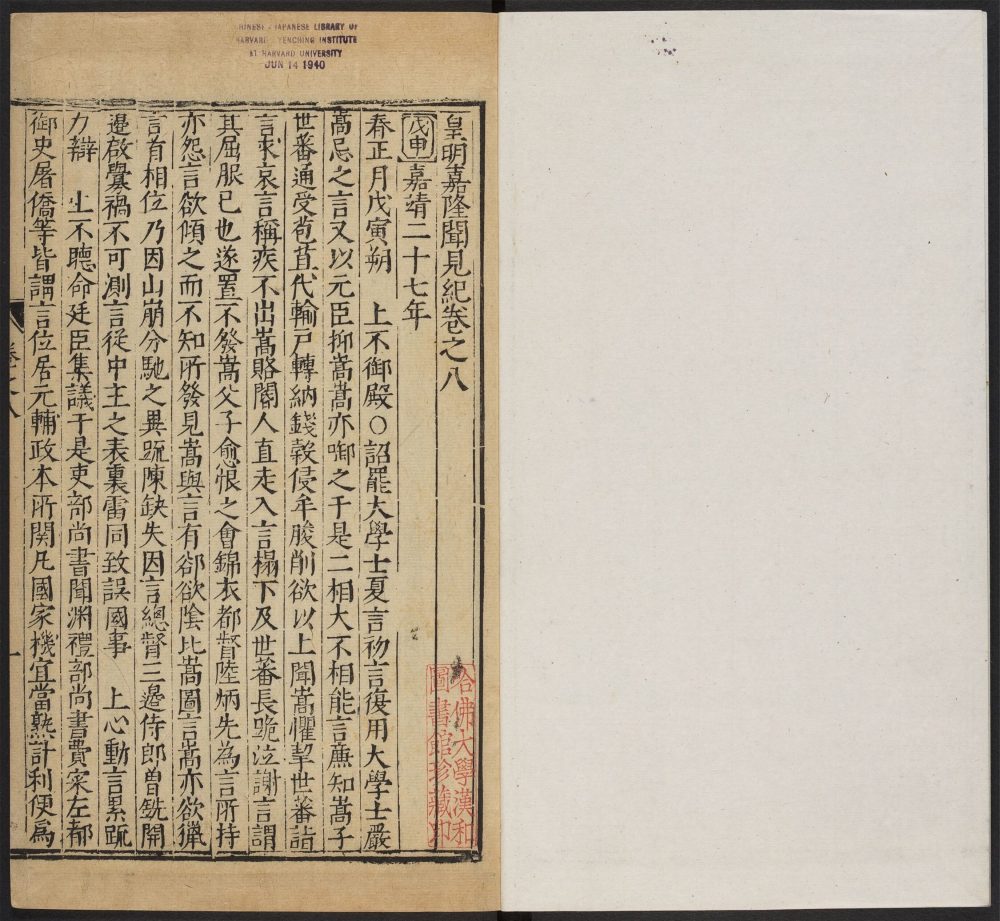 CHINESE - JAPANESE LIBRARY OF
HARVARD - YENCHING INSTITUTE
AT HARVARD UNIVERSITY
JUN 14 1940
皇明嘉隆聞見紀卷之八
戊申 嘉靖二十七年
春正月戊寅朔 上不御殿○詔罷大學士夏言初言復用大學士嚴
嵩忌之言又以元臣抑嵩嵩亦啣之于是二相大不相能言廉知嵩子
世蕃通受苞苴代輸戶轉納錢穀侵牟朘削欲以上聞嵩懼挈世蕃詣
言求哀言稱疾不出嵩賂閽人直走入言榻下及世蕃長跪泣謝言謂
其屈服已也遂置不發嵩父子愈恨之會錦衣都督陸炳先為言所持
亦怨言欲傾之而不知所發見嵩與言有郤欲陰比嵩圖言嵩亦欲獵
言首相位乃因山崩分馳之異䟽陳缺失因言總督三邉侍郎曾銑開
邉啟釁禍不可測言從中主之表裏雷同致誤國事 上心動言累䟽
力辯 上不聽命廷臣集議于是吏部尚書聞渊禮部尚書費寀左都
御史屠僑等皆謂言位居元輔政本所関凡國家機宜當熟計利便爲
卷之八
一
哈佛大學漢和
圖書館珍藏印